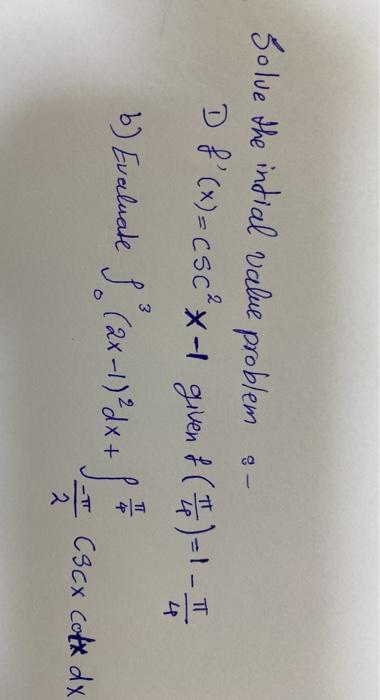 Solve the intial value problem :-
1) f'(x) = csc² x - 1 given f(π/4) = 1 - π/4
b) Evaluate ∫₀³ (2x-1)² dx + ∫_{-π/2}^{π/4} cscx cotx dx